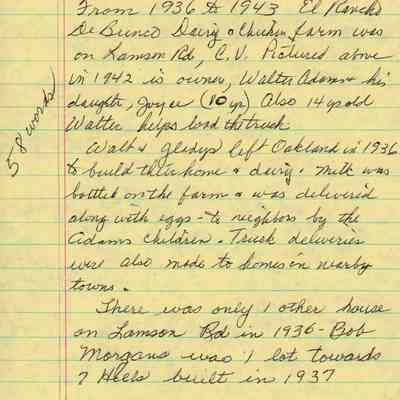 From 1936 to 1943 El Rancho
De Bunco Dairy & chicken farm was
on Lamson Rd, C.V. Pictured above
in 1942 is owner, Walter Adams & his
daughter, Joyce (10 yr) Also 14 yr old
Walter helps load the truck
Walt & Gladys left Oakland in 1936
to build their home & dairy. Milk was
bottled on the farm & was delivered
along with eggs - to neighbors by the
Adams children. Truck deliveries
were also made to homes in nearby
towns.
There was only 1 other house
on Lamson Rd in 1936 - Bob
Morgans was 1 lot towards
7 Hills built in 1937
58 words